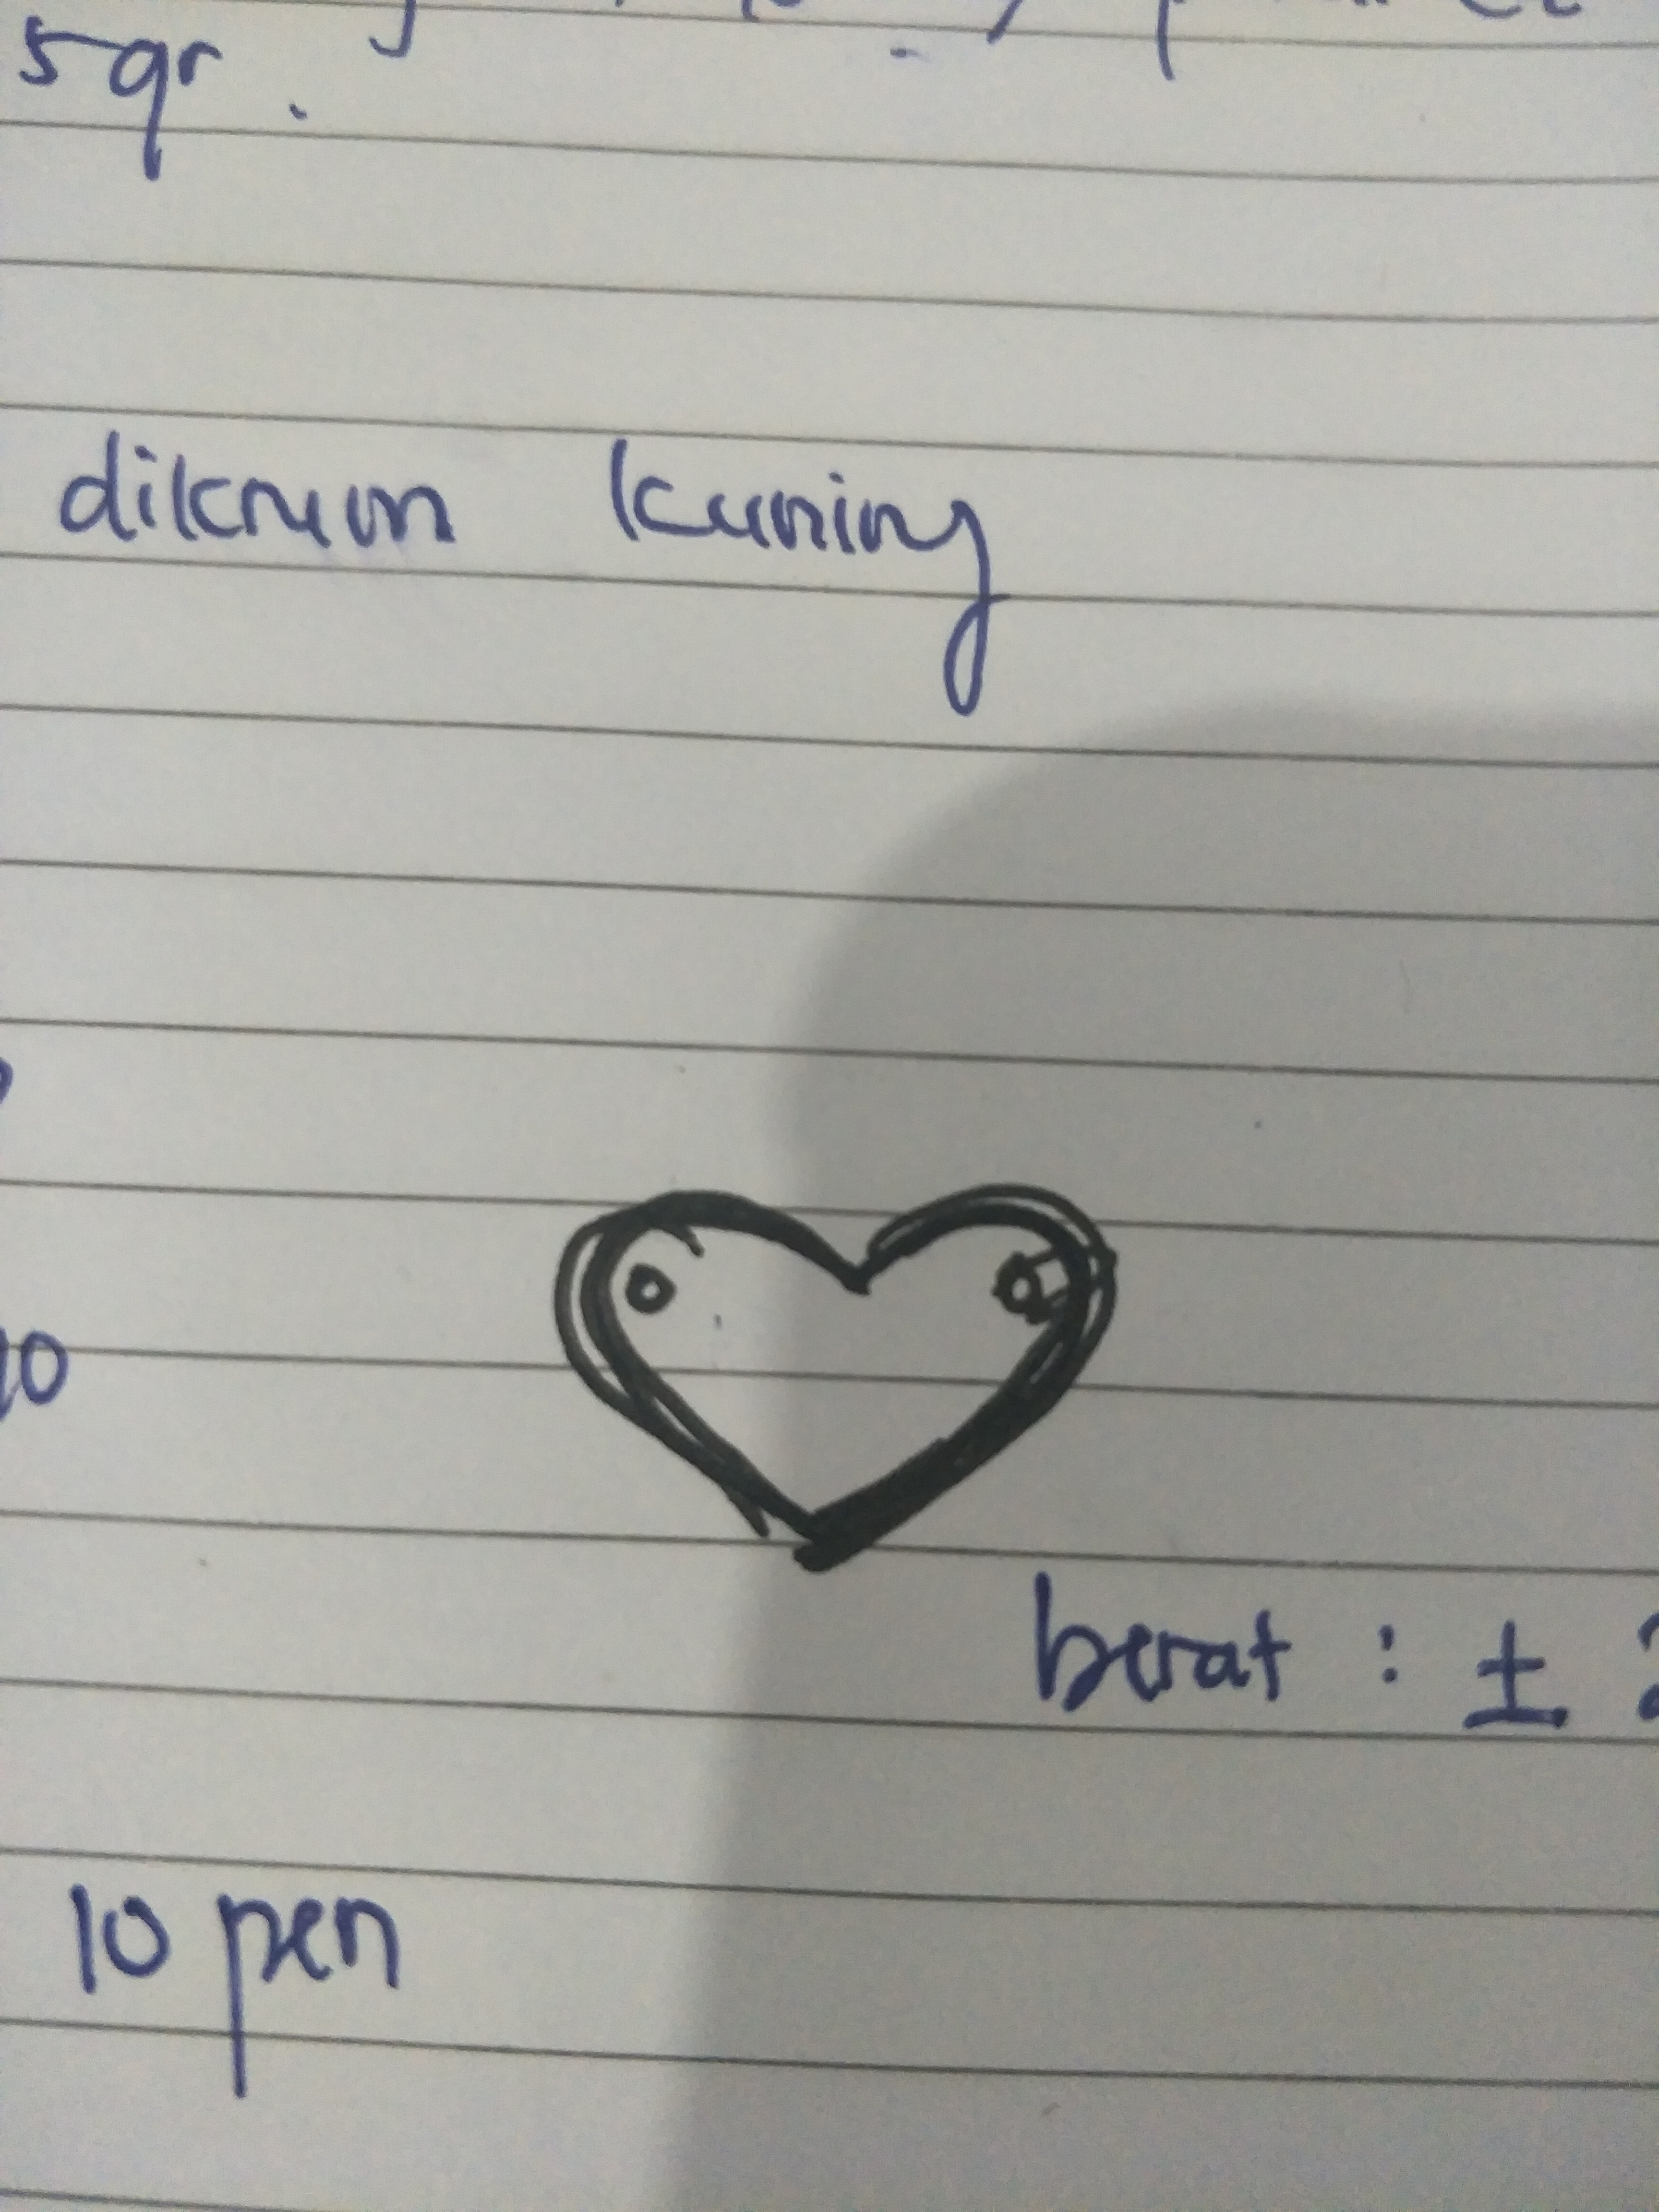 5 gr.
dikrum kuning
10
berat : ± 2
10 pen